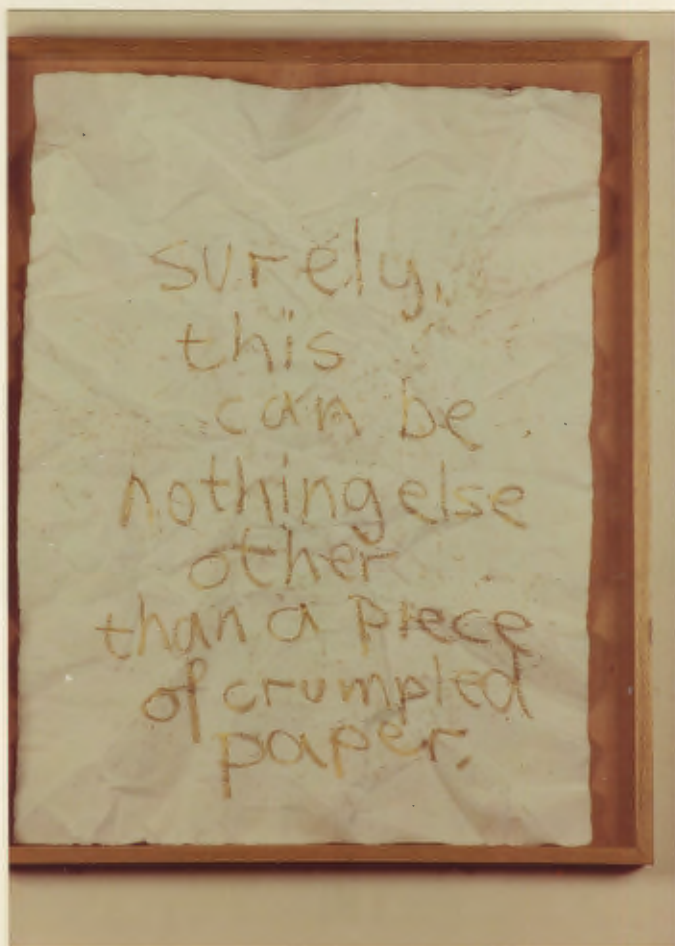 surely,
this
can be
nothing else
other
than a piece
of crumpled
paper.